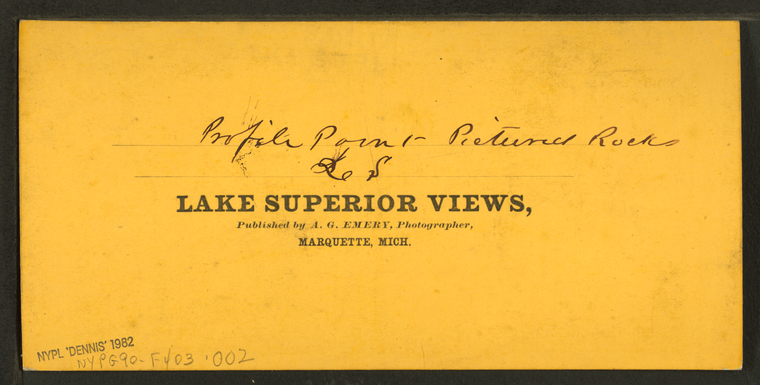 Profile Point Pictured Rocks
L S
LAKE SUPERIOR VIEWS,
Published by A. G. EMERY, Photographer,
MARQUETTE, MICH.
NYPL 'DENNIS' 1982
NYPG90-F403.002